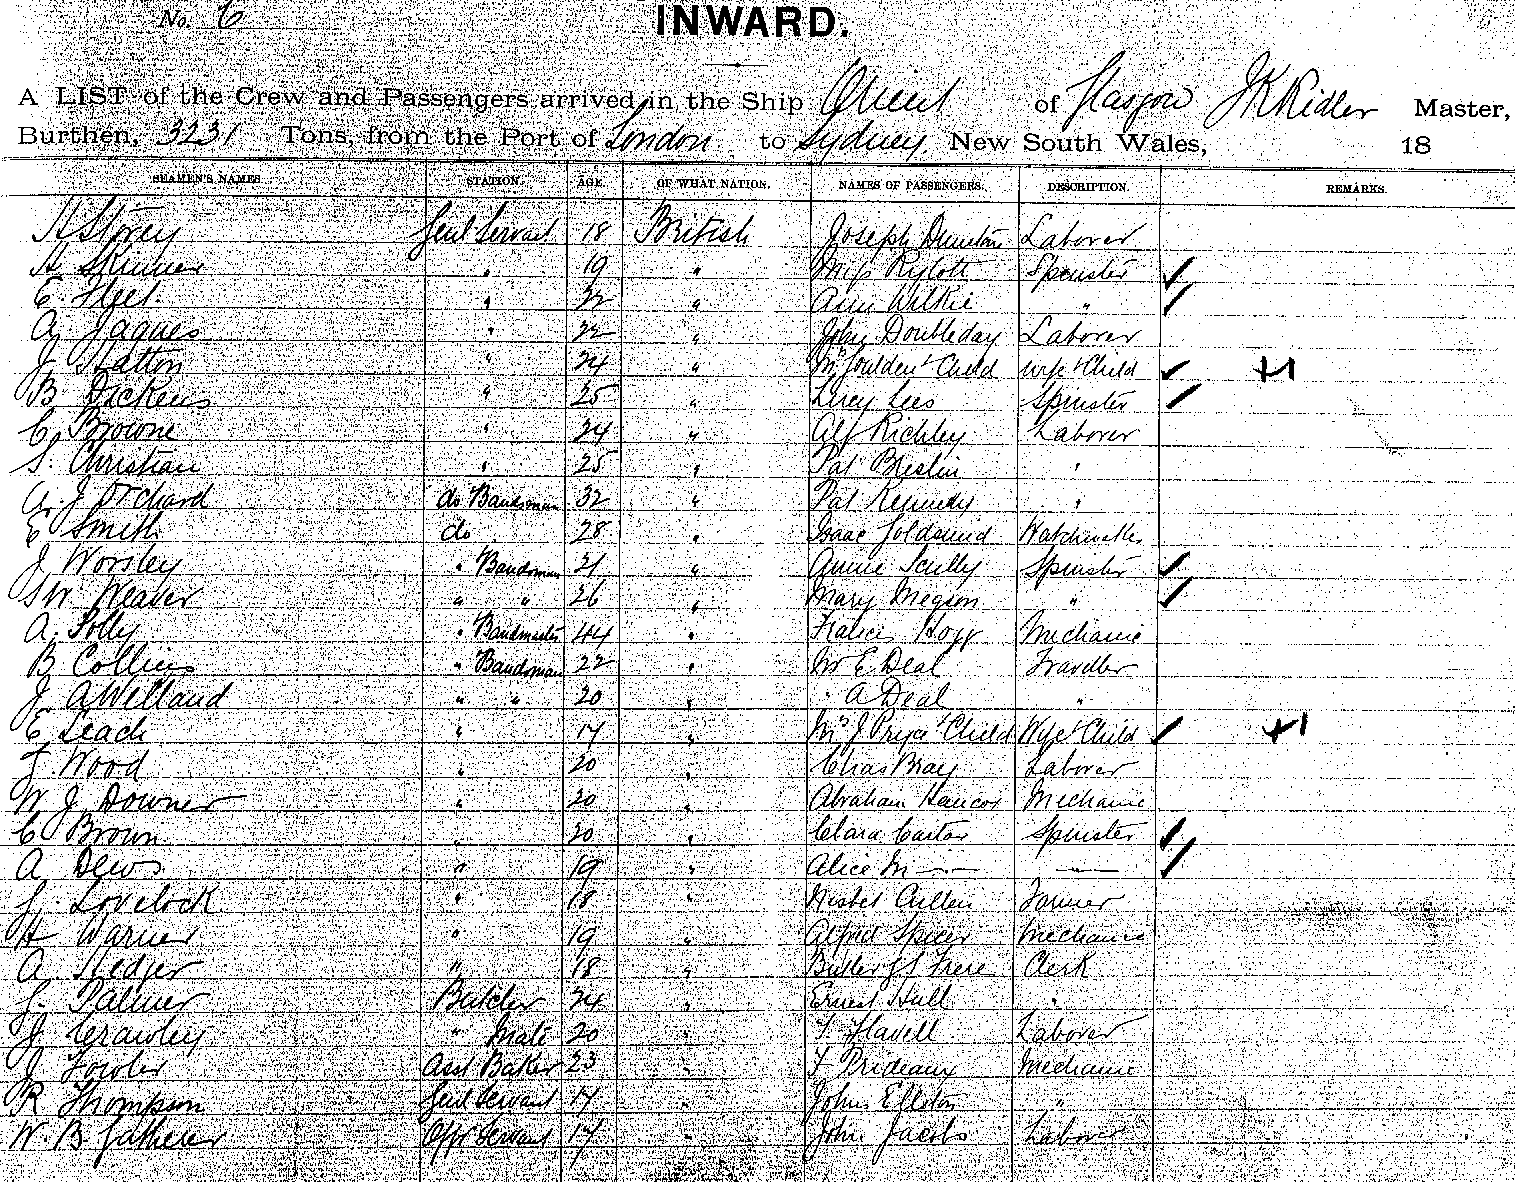 No. 6
INWARD.
A LIST of the Crew and Passengers arrived in the Ship Orient of Glasgow J K Ridler Master,
Burthen, 3231 Tons, from the Port of London to Sydney, New South Wales, 18
SEAMEN'S NAMES. STATION. AGE. OF WHAT NATION. NAMES OF PASSENGERS. DESCRIPTION. REMARKS.
A Storey Genl Servant 18 British Joseph Dunton Laborer
A. Skinner " 19 " Miss Rylott Spinster ✓
E. Fleet " 32 " Ann Wilkie " ✓
A. Jaques " 22 " John Doubleday Laborer
J Hatton " 24 " Mrs Goulden & Child wife & Child ✓ +1
B Dickens " 25 " Lucy Lees Spinster ✓
C. Browne " 24 " Alf Richley Laborer
S. Christian " 25 " Pat Breslin "
A. J Orchard do Bandsman 32 " Pat Kennedy "
E Smith do 28 " Isaac Goldsmid Watchmaker
J Worsley " Bandsman 21 " Annie Scully Spinster ✓
W Weaver " " 26 " Mary Megson " ✓
A. Polly " Bandmaster 44 " Hogg Mechanic
B Collins " Bandsman 22 " Mr E Deal Traveller
J. A Welland " " 20 " " A Deal "
E Leach " 17 " Mrs J Pryce & Child Wife & Child ✓ +1
T. Wood " 20 " Chas Bray Laborer
W J Downer " 20 " Abraham Mechanic
C Brown " 20 " Clara Carter Spinster ✓
A Dews " 19 " Alice M — — ✓
J. Lovelock " 18 " Nisbet Cullen Farmer
H Warner " 19 " Alfred Spicer Mechanic
A. Hedger " 18 " Butler Frere Clerk
G. Palmer Butcher 24 " Ernest Hull "
J Crawley " Mate 20 " F Flavell Laborer
J Fowler Asst Baker 23 " F Prideaux Mechanic
R Thompson Genl Servant 17 " John "
W. B. Gatherer Offr Servant 17 " John Jacobs Laborer